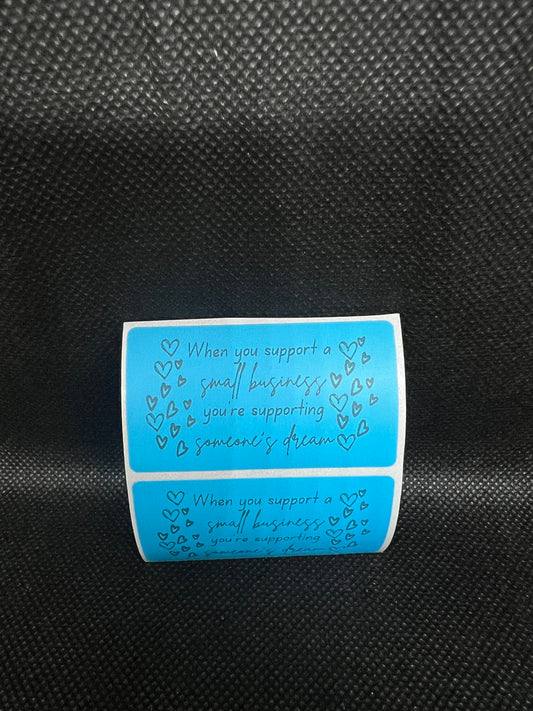 When you support a
small business
you're supporting
someone's dream
When you support a
small business
you're supporting
someone's dream